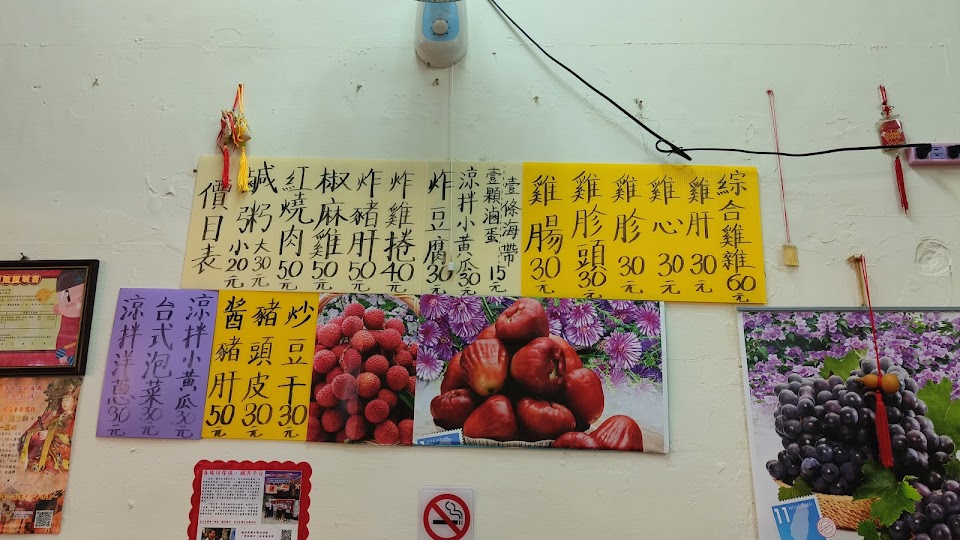 價目表
鹹粥 小20元 大30元
紅燒肉 50元
椒麻雞 50元
炸豬肝 50元
炸雞捲 40元
炸豆腐 30元
涼拌小黃瓜 30元
壹顆滷蛋
壹條海帶
15元
雞腸 30元
雞胗頭 30元
雞胗 30元
雞心 30元
雞肝 30元
綜合雞雜 60元
涼拌洋蔥 30元
台式泡菜 30元
涼拌小黃瓜 30元
醬豬肝 50元
豬頭皮 30元
炒豆干 30元
11